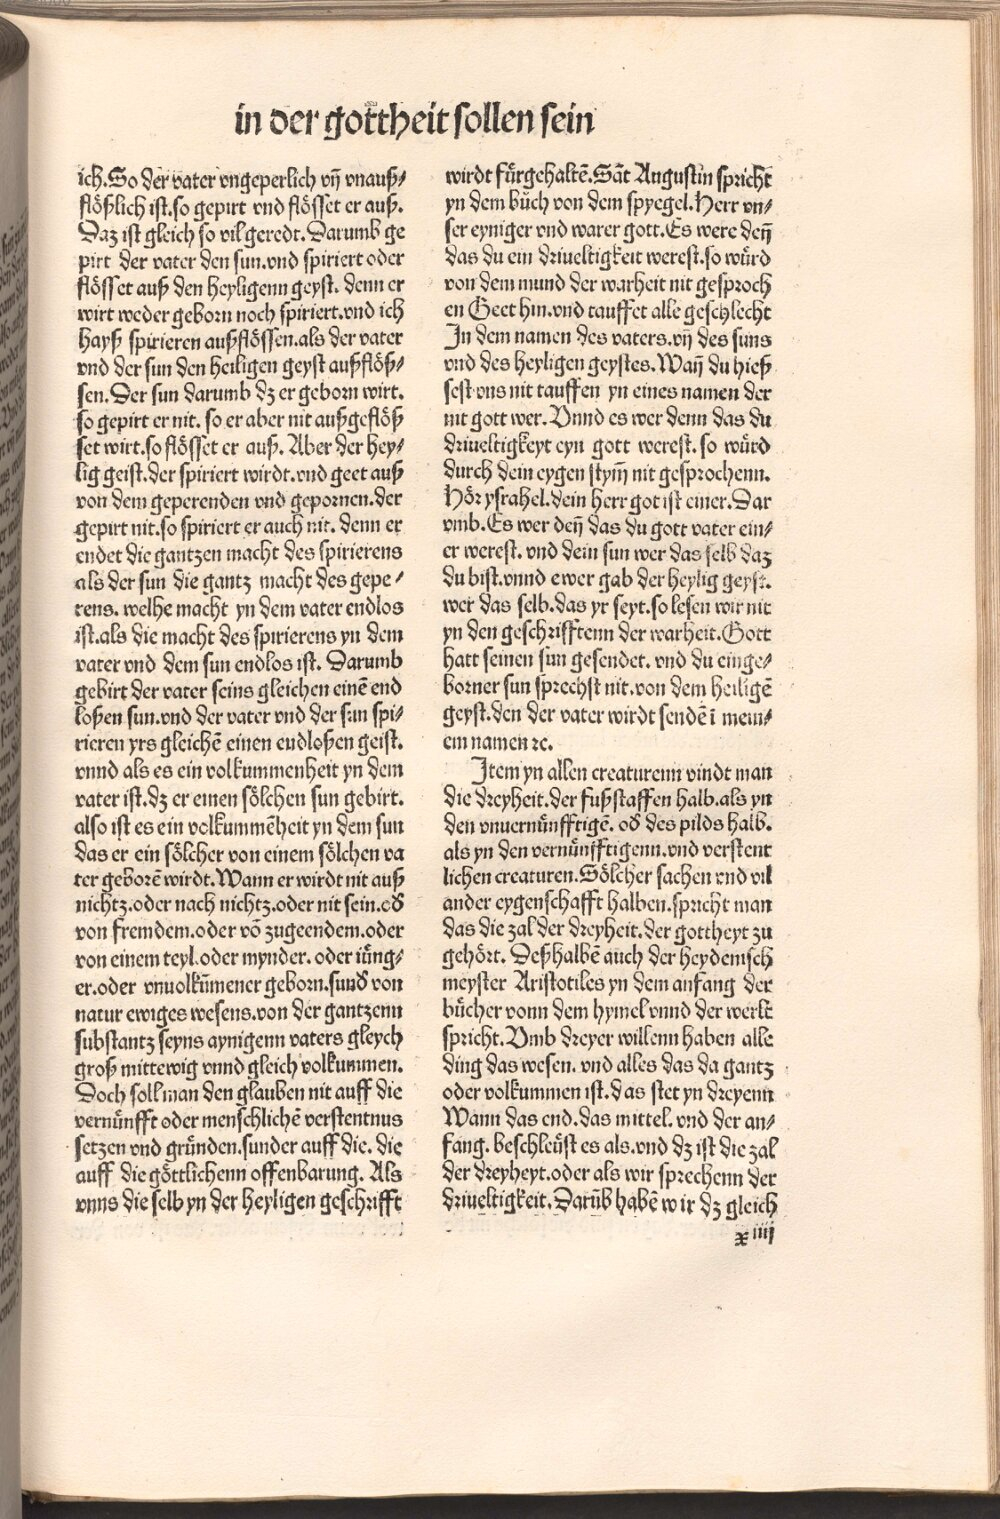 in der gottheit sollen sein
ich. So der vater vngeperlich vn̄ vnauß⸗
flößlich ist. so gepirt vnd flösset er auß.
Daz ist gleich so vil geredt. Darumb ge
pirt der vater den sun. vnd spiriert oder
flösset auß den heyligenn geyst. denn er
wirt weder geborn noch spiriert. vnd ich
hayß spirieren außflössen. als der vater
vnd der sun den heiligen geyst außflöß⸗
sen. Der sun darumb dz er geborn wirt.
so gepirt er nit. so er aber nit außgeflöß
set wirt. so flösset er auß. Aber der hey⸗
lig geist. der spiriert wirdt. vnd geet auß
von dem geperenden vnd gepornen. der
gepirt nit. so spiriert er auch nit. denn er
endet die gantzen macht des spirierens
als der sun die gantz macht des gepe⸗
rens. welhe macht yn dem vater endlos
ist. als die macht des spirierens yn dem
vater vnd dem sun endlos ist. Darumb
gebirt der vater seins gleichen einē end
loßen sun. vnd der vater vnd der sun spi⸗
rieren yrs gleichē einen endloßen geist.
vnnd als es ein volkummenheit yn dem
vater ist. dz er einen sölchen sun gebirt.
also ist es ein volkummēheit yn dem sun
das er ein sölcher von einem sölchen va
ter geborē wirdt. Wann er wirdt nit auß
nichtz. oder nach nichtz. oder nit sein. od̄
von fremdem. oder vō zugeendem. oder
von einem teyl. oder mynder. oder iüng⸗
er. oder vnuolkūmener geborn. sund̄ von
natur ewiges wesens. von der gantzenn
substantz seyns aynigenn vaters gleych
groß mittewig vnnd gleich volkummen.
Doch soll man den glauben nit auff die
vernünfft oder menschlichē verstentnus
setzen vnd gründen. sunder auff die. die
auff die göttlichenn offenbarung. Als
vnns die selb yn der heyligen geschrifft
wirdt fürgehaltē. Sāt Augustin spricht
yn dem bůch von dem spyegel. Herr vn⸗
ser eyniger vnd warer gott. Es were den̄
das du ein driueltigkeit werest. so würd
von dem mund der warheit nit gesproch
en Geet hin. vnd tauffet alle geschlecht
In dem namen des vaters. vn̄ des suns
vnd des heyligen geystes. Wan̄ du hieß
sest vns nit tauffen yn eines namen der
nit gott wer. Vnnd es wer denn das du
driueltigkeyt eyn gott werest. so würd
durch dein eygen stym̄ nit gesprochenn.
Hör ysrahel. dein herr got ist einer. Dar
vmb. Es wer den̄ das du gott vater ein⸗
er werest. vnd dein sun wer das selb daz
du bist. vnnd ewer gab der heylig geyst.
wer das selb. das yr seyt. so lesen wir nit
yn den geschrifftenn der warheit. Gott
hatt seinen sun gesendet. vnd du einge⸗
borner sun sprechst nit. von dem heiligē
geyst. den der vater wirdt sendē ī mein⸗
em namen ꝛc.
Item yn allen creaturenn vindt man
die dreyheit. der fußstaffen halb. als yn
den vnuernünfftigē. od̄ des pilds halb.
als yn den vernünfftigenn. vnd verstent
lichen creaturen. Sölcher sachen vnd vil
ander eygenschafft halben. spricht man
das die zal der dreyheit. der gottheyt zu
gehört. Deßhalbē auch der heydenisch
meyster Aristotiles yn dem anfang der
bücher vonn dem hymel vnnd der werlt
spricht. Vmb dreyer willenn haben alle
ding das wesen. vnd alles das da gantz
oder volkummen ist. das stet yn dreyenn
Wann das end. das mittel. vnd der an⸗
fang. beschleüst es als. vnd dz ist die zal
der dreyheyt. oder als wir sprechenn der
driueltigkeit. Darūb habē wir dz gleich
x iiij